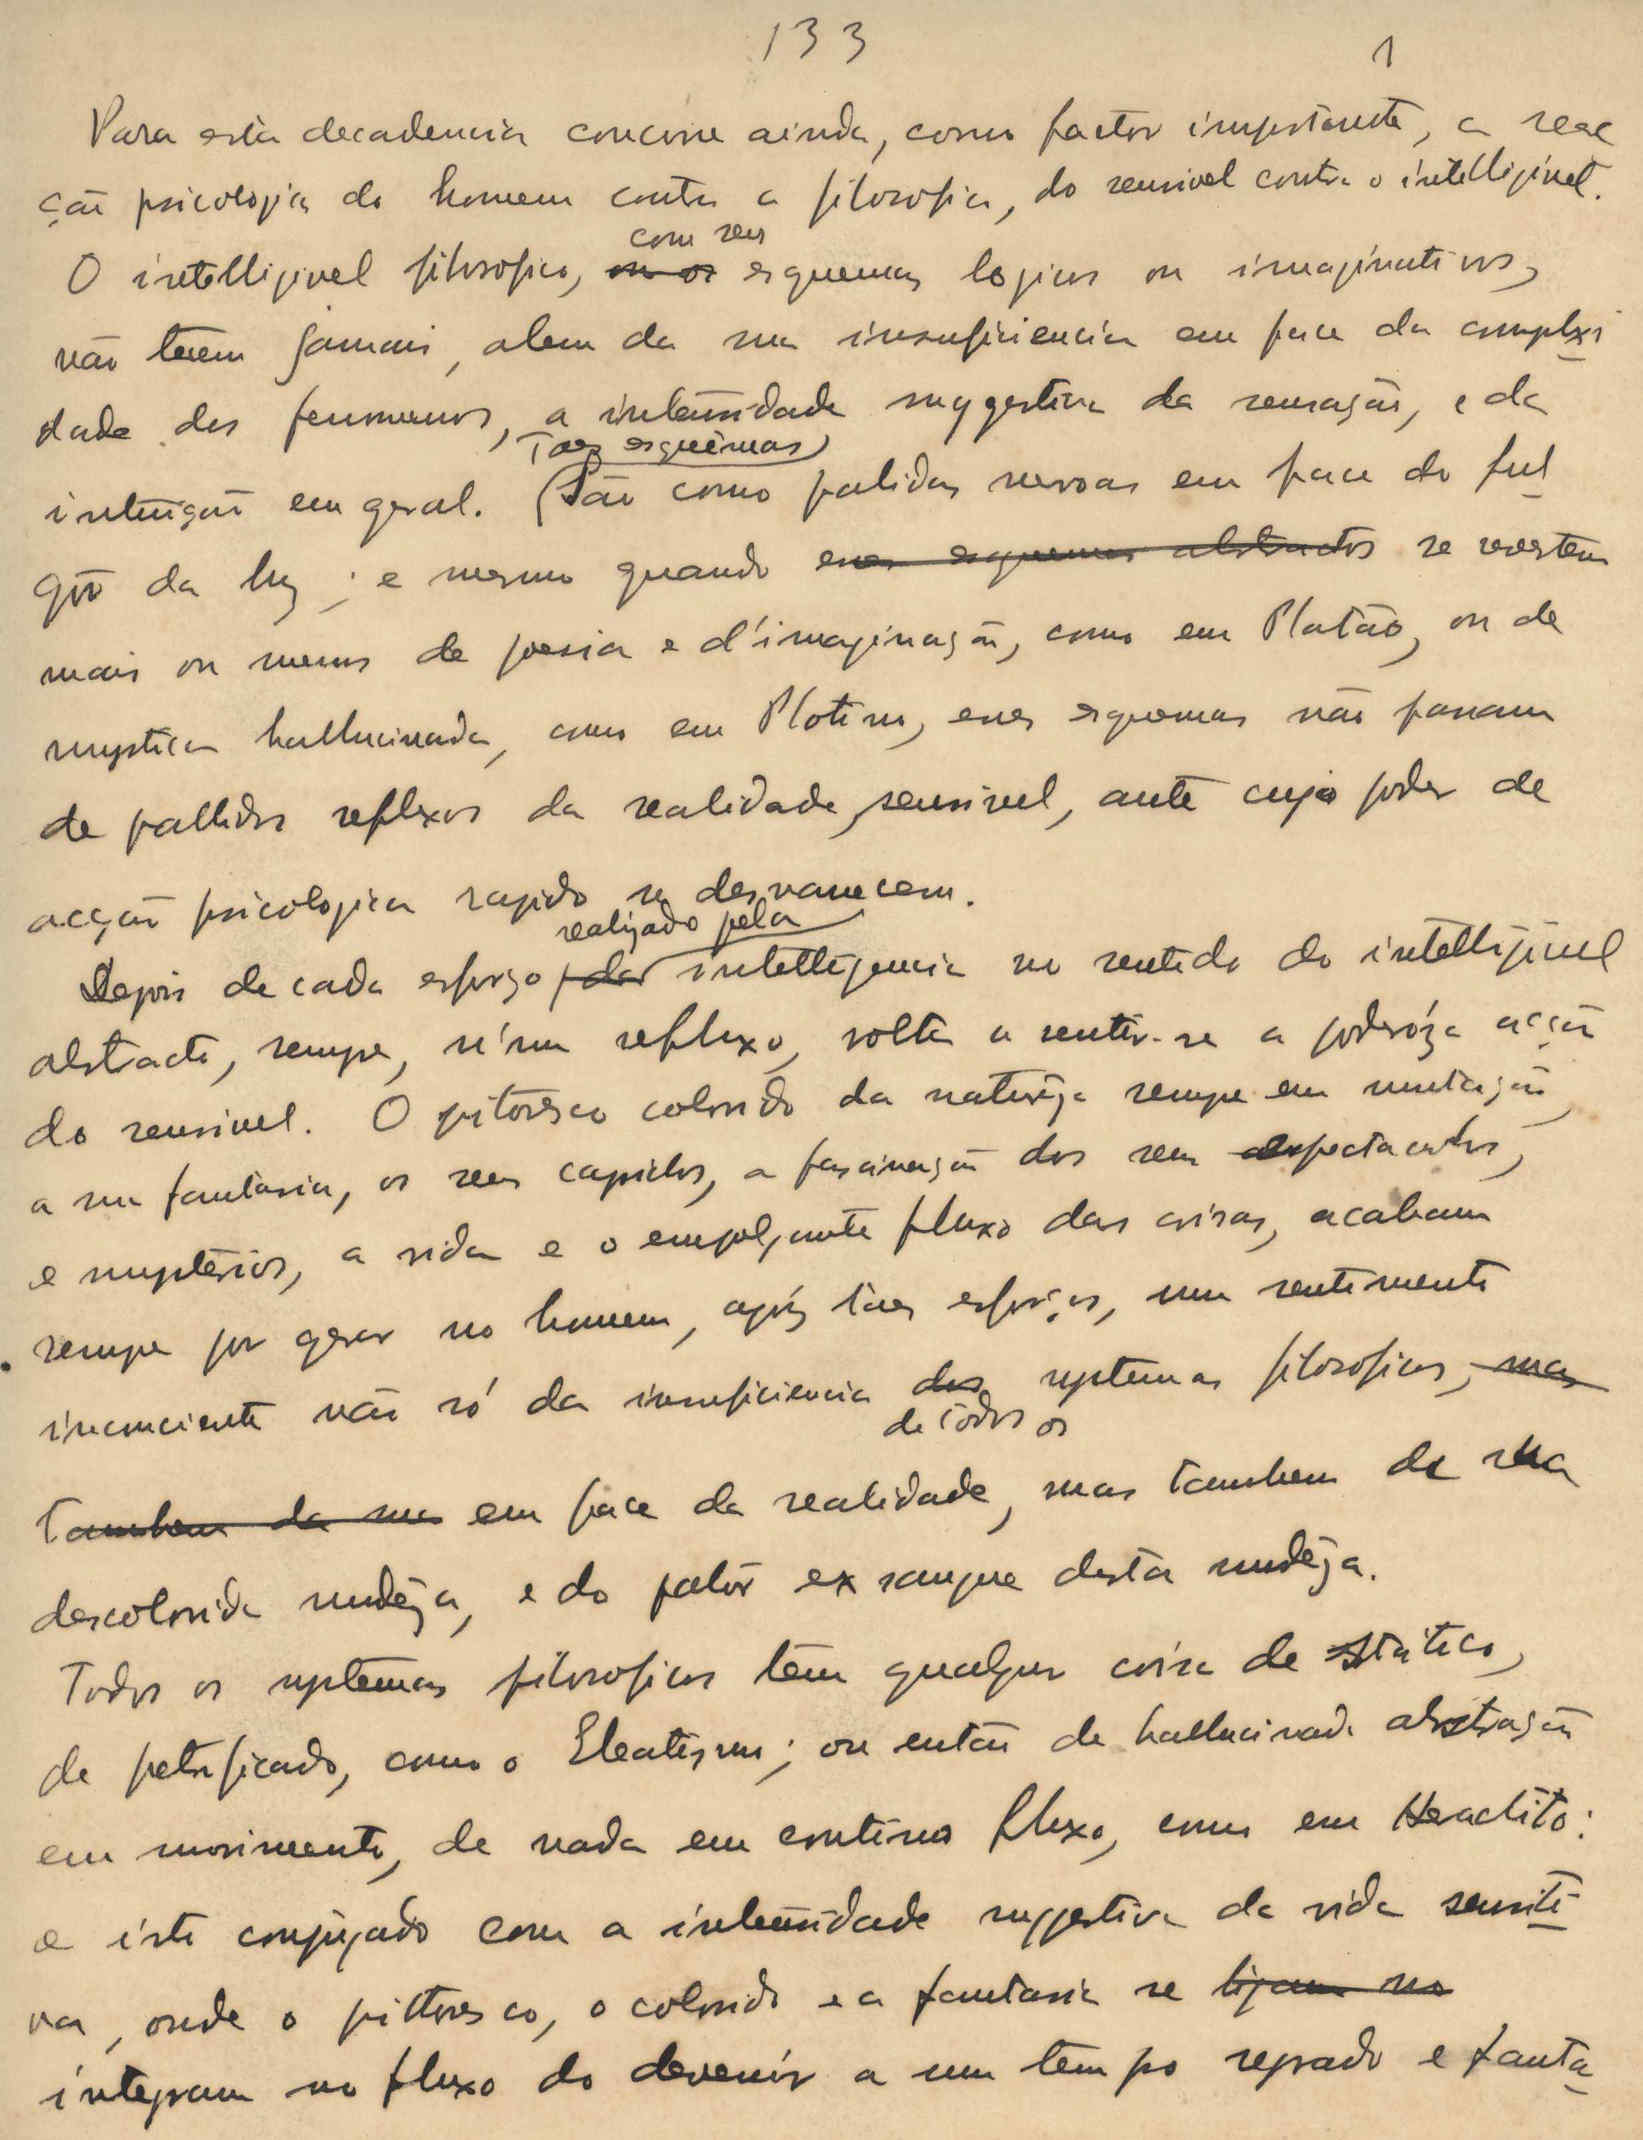 133
1
Para esta decadencia concorre ainda, como factor importante, a reac
ção psicologica do homem contra a filosofia, do sensivel contra o intelligivel.
com seus
O intelligivel filosofico, ou os esquemas logicos ou imaginativos,
não teem jamais, alem da sua insuficiencia em face da complexi
dade dos fenomenos, a intensidade suggestiva da sensação, e da
Taes esquemas
intuição em geral. (São como palidas nevoas em face do ful
gôr da luz; e mesmo quando esses esquemas abstractos se revestem
mais ou menos de poesia e d'imaginação, como em Platão, ou de
mystica hallucinada, como em Plotino, esses esquemas não passam
de pallidos reflexos da realidade sensivel, ante cujo poder de
acção psicologica rapido se desvanecem.
realizado pela
Depois de cada esforço da intelligencia no sentido do intelligivel
abstracto, sempre, n'um refluxo, volta a sentir-se a poderóza acção
do sensivel. O pitoresco colorido da natureza sempre em mutação,
a sua fantasia, os seus caprichos, a fascinação dos seus espectaculos,
e mysterios, a vida e o empolgante fluxo das coisas, acabam
sempre por gerar no homem, após taes esforços, um sentimento
inconsciente não só da insuficiencia dos systemas filosoficos, mas
de todos os
tambem da sua em face da realidade, mas tambem de sua
descolorida nudêza, e do palôr exsangue desta nudêza.
Todos os systemas filosoficos têm qualquer coisa de státtico,
de petrificado, como o Eleatismo; ou então de hallucinada abstração
em movimento, de nada em continuo fluxo, como em Heraclito:
e isto conjugado com a intensidade suggestiva da vida sensiti
va, onde o pittoresco, o colorido e a fantasia se ligam no
integram no fluxo do devenir a um tempo regrado e fanta